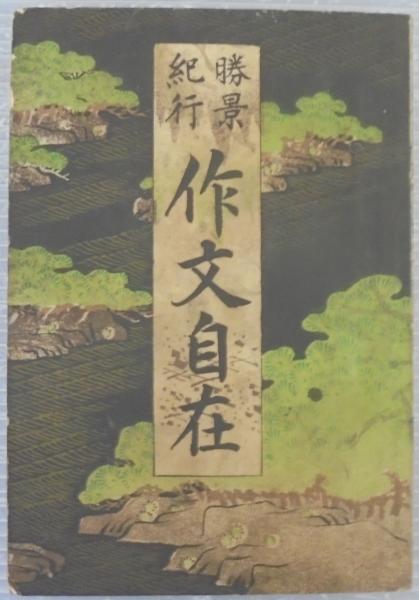 勝景
紀行
作文自在